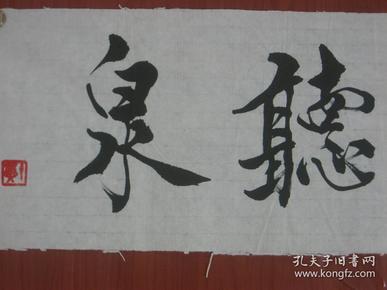 聽泉
孔夫子旧书网
www.kongfz.com